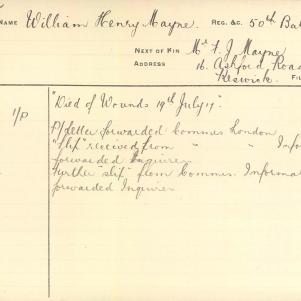 NAME William Henry Mayne. REG. &C. 50th Bat
NEXT OF KIN Mr F. J. Mayne
ADDRESS 16. Ashford Road
Keswick. FI
"Died of Wounds 19th July 17."
1/P P/letter forwarded Commrs London
"slip" received from " " Infor
forwarded Inquirer
Further "slip" from Commrs. Informat
forwarded Inquirer